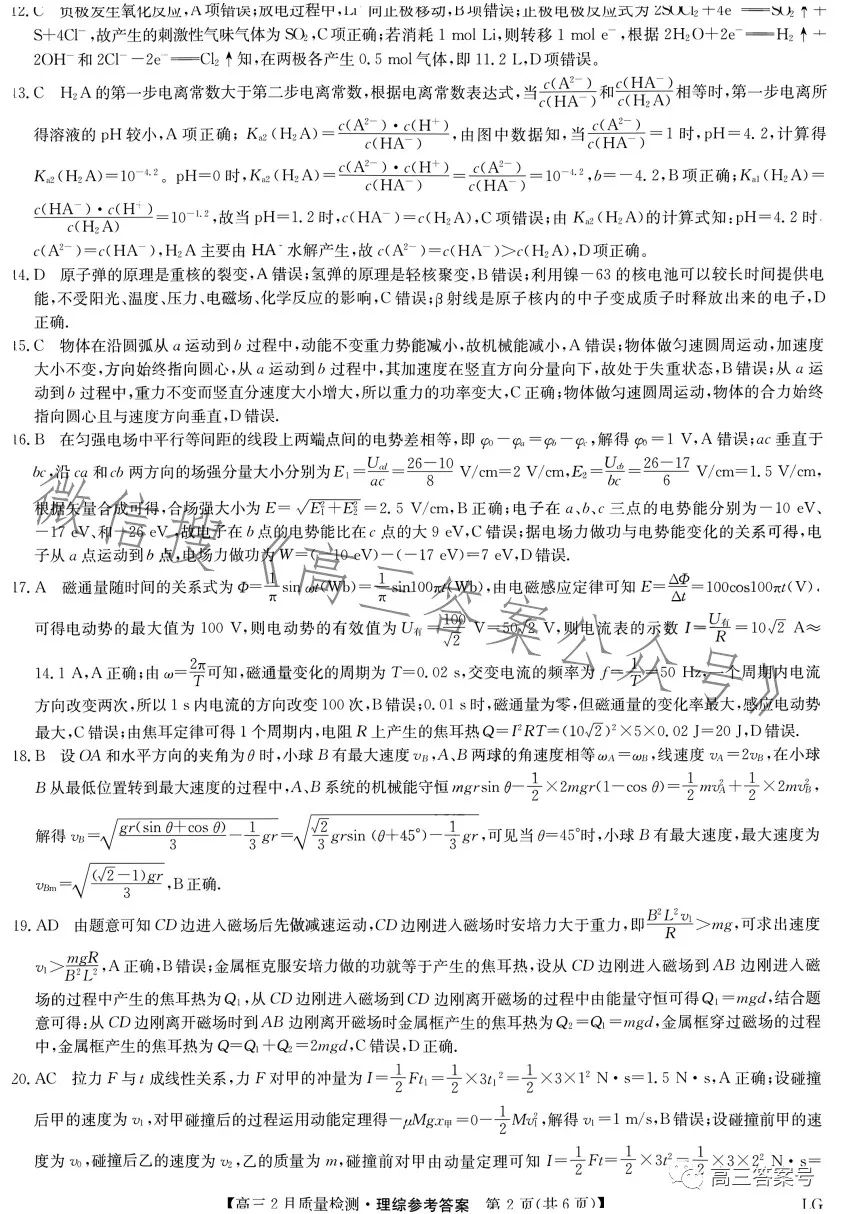 12. C 负极发生氧化反应,A项错误;放电过程中,Li⁺向正极移动,B项错误;正极电极反应式为2SOCl₂+4e⁻══SO₂↑+
S+4Cl⁻,故产生的刺激性气味气体为SO₂,C项正确;若消耗1 mol Li,则转移1 mol e⁻,根据2H₂O+2e⁻══H₂↑+
2OH⁻和2Cl⁻-2e⁻══Cl₂↑知,在两极各产生0.5 mol气体,即11.2 L,D项错误。
13. C H₂A的第一步电离常数大于第二步电离常数,根据电离常数表达式,当c(A²⁻)/c(HA⁻)和c(HA⁻)/c(H₂A)相等时,第一步电离所
得溶液的pH较小,A项正确;Ka2(H₂A)=c(A²⁻)·c(H⁺)/c(HA⁻),由图中数据知,当c(A²⁻)/c(HA⁻)=1时,pH=4.2,计算得
Ka2(H₂A)=10^(-4.2)。pH=0时,Ka2(H₂A)=c(A²⁻)·c(H⁺)/c(HA⁻)=c(A²⁻)/c(HA⁻)=10^(-4.2),b=-4.2,B项正确;Ka1(H₂A)=
c(HA⁻)·c(H⁺)/c(H₂A)=10^(-1.2),故当pH=1.2时,c(HA⁻)=c(H₂A),C项错误;由Ka2(H₂A)的计算式知:pH=4.2时,
c(A²⁻)=c(HA⁻),H₂A主要由HA⁻水解产生,故c(A²⁻)=c(HA⁻)>c(H₂A),D项正确。
14. D 原子弹的原理是重核的裂变,A错误;氢弹的原理是轻核聚变,B错误;利用镍-63的核电池可以较长时间提供电
能,不受阳光、温度、压力、电磁场、化学反应的影响,C错误;β射线是原子核内的中子变成质子时释放出来的电子,D
正确.
15. C 物体在沿圆弧从a运动到b过程中,动能不变重力势能减小,故机械能减小,A错误;物体做匀速圆周运动,加速度
大小不变,方向始终指向圆心,从a运动到b过程中,其加速度在竖直方向分量向下,故处于失重状态,B错误;从a运
动到b过程中,重力不变而竖直分速度大小增大,所以重力的功率变大,C正确;物体做匀速圆周运动,物体的合力始终
指向圆心且与速度方向垂直,D错误.
16. B 在匀强电场中平行等间距的线段上两端点间的电势差相等,即φ₀-φa=φb-φc,解得φ₀=1 V,A错误;ac垂直于
bc,沿ca和cb两方向的场强分量大小分别为E₁=Ucd/ac=(26-10)/8 V/cm=2 V/cm,E₂=Ucb/bc=(26-17)/6 V/cm=1.5 V/cm,
根据矢量合成可得,合场强大小为E=√(E₁²+E₂²)=2.5 V/cm,B正确;电子在a、b、c三点的电势能分别为-10 eV、
-17 eV、和-26 eV,故电子在b点的电势能比在c点的大9 eV,C错误;据电场力做功与电势能变化的关系可得,电
子从a点运动到b点,电场力做功为W=(-10 eV)-(-17 eV)=7 eV,D错误.
17. A 磁通量随时间的关系式为Φ=1/π sin ωt(Wb)=1/π sin100πt(Wb),由电磁感应定律可知E=ΔΦ/Δt=100cos100πt(V),
可得电动势的最大值为100 V,则电动势的有效值为U有=100/√2 V=50√2 V,则电流表的示数I=U有/R=10√2 A≈
14.1 A,A正确;由ω=2π/T可知,磁通量变化的周期为T=0.02 s,交变电流的频率为f=1/T=50 Hz,一个周期内电流
方向改变两次,所以1 s内电流的方向改变100次,B错误;0.01 s时,磁通量为零,但磁通量的变化率最大,感应电动势
最大,C错误;由焦耳定律可得1个周期内,电阻R上产生的焦耳热Q=I²RT=(10√2)²×5×0.02 J=20 J,D错误.
18. B 设OA和水平方向的夹角为θ时,小球B有最大速度vB,A、B两球的角速度相等ωA=ωB,线速度vA=2vB,在小球
B从最低位置转到最大速度的过程中,A、B系统的机械能守恒mgrsin θ-1/2×2mgr(1-cos θ)=1/2 mvA²+1/2×2mvB²,
解得vB=√(gr(sin θ+cos θ)/3-1/3 gr)=√(√2/3 grsin (θ+45°)-1/3 gr),可见当θ=45°时,小球B有最大速度,最大速度为
vBm=√((√2-1)gr/3),B正确.
19. AD 由题意可知CD边进入磁场后先做减速运动,CD边刚进入磁场时安培力大于重力,即B²L²v₁/R>mg,可求出速度
v₁>mgR/B²L²,A正确,B错误;金属框克服安培力做的功就等于产生的焦耳热,设从CD边刚进入磁场到AB边刚进入磁
场的过程中产生的焦耳热为Q₁,从CD边刚进入磁场到CD边刚离开磁场的过程中由能量守恒可得Q₁=mgd,结合题
意可得:从CD边刚离开磁场时到AB边刚离开磁场时金属框产生的焦耳热为Q₂=Q₁=mgd,金属框穿过磁场的过程
中,金属框产生的焦耳热为Q=Q₁+Q₂=2mgd,C错误,D正确.
20. AC 拉力F与t成线性关系,力F对甲的冲量为I=1/2 Ft₁=1/2×3t₁²=1/2×3×1² N·s=1.5 N·s,A正确;设碰撞
后甲的速度为v₁,对甲碰撞后的过程运用动能定理得-μMgx甲=0-1/2 Mv₁²,解得v₁=1 m/s,B错误;设碰撞前甲的速
度为v₀,碰撞后乙的速度为v₂,乙的质量为m,碰撞前对甲由动量定理可知I=1/2 Ft=1/2×3t²=1/2×3×2² N·s=
【高三2月质量检测·理综参考答案 第2页(共6页)】 LG
微信搜《高三答案公众号》
高三答案号